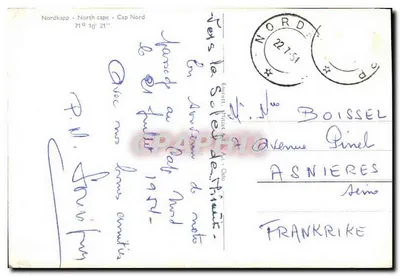 Nordkapp - North cape - Cap Nord
71° 10' 21"
Vers la Soleil de Minuit -
En souvenir de notre
passage au Cap Nord
le 21 Juillet 1951 -
avec nos bonnes amitiés
P. M.
NORD
22.7.51
BOISSEL
avenue Pinel
ASNIERES
Seine
FRANKRIKE
CARTORUM